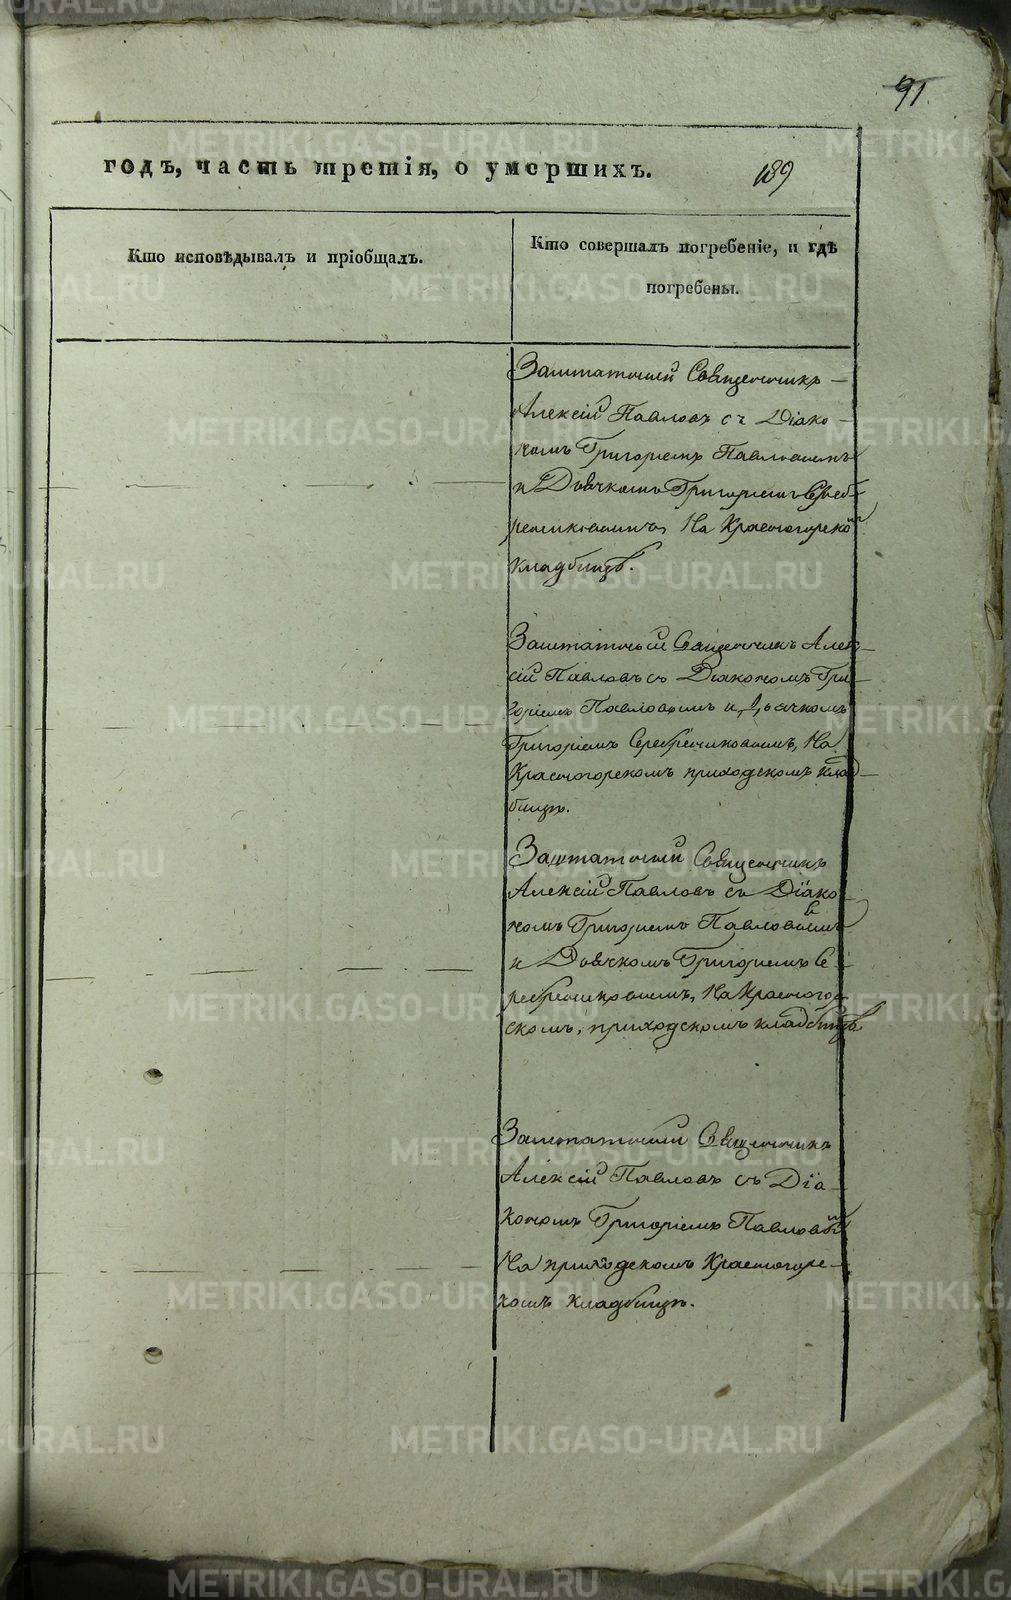 91.
годъ, часть третія, о умершихъ.
189
Кто исповѣдывалъ и пріобщалъ.
Кто совершалъ погребеніе, и гдѣ
погребены.
Заштатный Священникъ
Алексій Павловъ съ Діако-
номъ Григоріемъ Павловымъ
и Дьячкомъ Григоріемъ Сереб-
рениковымъ, На Красногорской
кладбищѣ.
Заштатный Священникъ Алек-
сій Павловъ съ Діакономъ Гри-
горіемъ Павловымъ и Дьячкомъ
Григоріемъ Серебрениковымъ, На
Красногорскомъ приходскомъ клад-
бищѣ.
Заштатный Священникъ
Алексій Павловъ съ Діако-
номъ Григоріемъ Павловымъ
и Дьячкомъ Григоріемъ Се-
ребрениковымъ, На Красногор-
скомъ, приходскомъ кладбищѣ
Заштатный Священникъ
Алексій Павловъ съ Діа-
кономъ Григоріемъ Павловым
На приходскомъ Красногорс-
комъ кладбищѣ.
METRIKI.GASO-URAL.RU